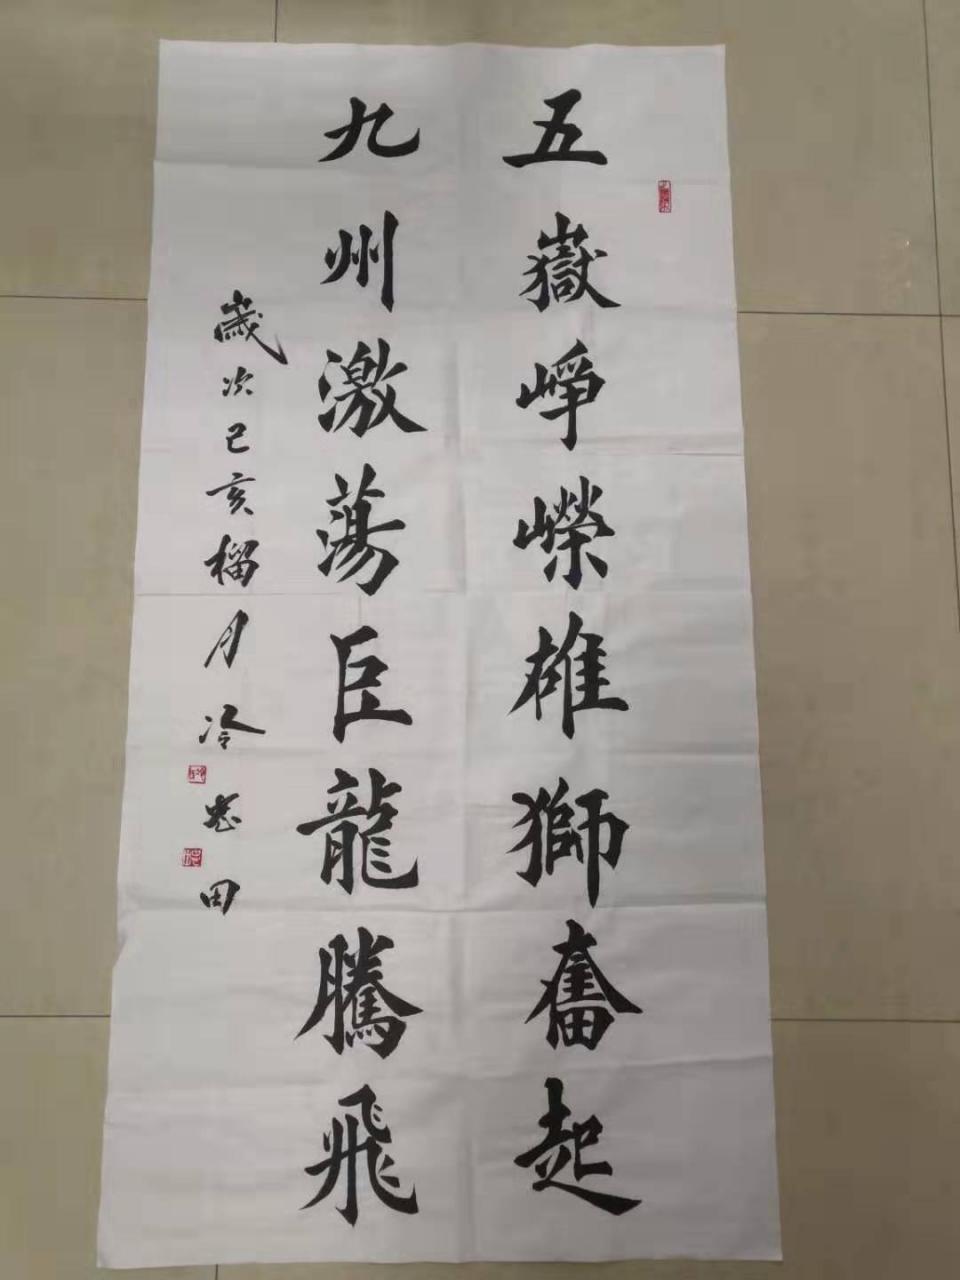 五嶽崢嶸雄獅奮起
九州激蕩巨龍騰飛
歲次己亥榴月冷忠田